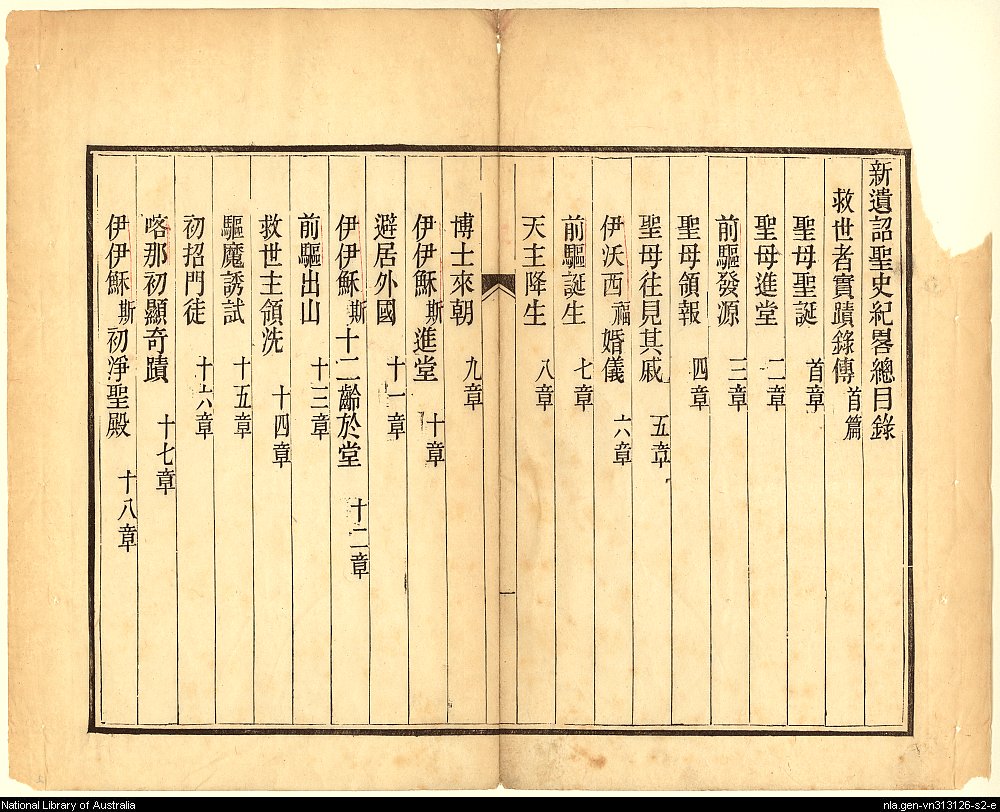 新遺詔聖史紀畧總目錄
救世者實蹟錄傳 首篇
聖母聖誕 首章
聖母進堂 二章
前驅發源 三章
聖母領報 四章
聖母往見其戚 五章
伊沃西福婚儀 六章
前驅誕生 七章
天主降生 八章
一
博士來朝 九章
伊伊穌斯進堂 十章
避居外國 十一章
伊伊穌斯十二齡於堂 十二章
前驅出山 十三章
救世主領洗 十四章
驅魔誘試 十五章
初招門徒 十六章
喀那初顯奇蹟 十七章
伊伊穌斯初淨聖殿 十八章
National Library of Australia
nla.gen-vn313126-s2-e